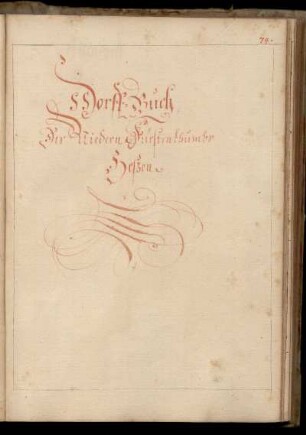 79.
Dorff-Buch
Der Niedern Fürstenthumbs
Heßen.